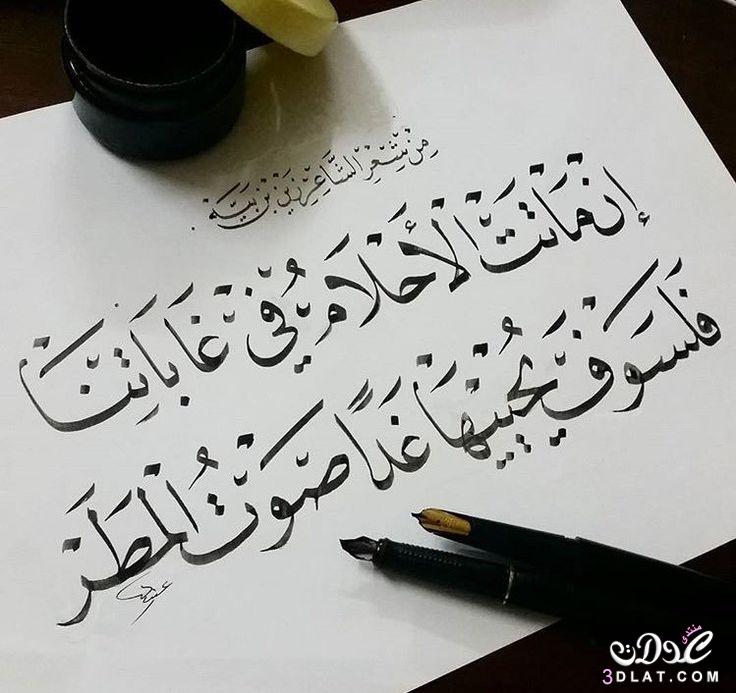 مِنْ شِعْرِ الشَّاعِرِ زَيْن بْن بَيَّه
إِنْ مَاتَتْ الْأَحْلَامُ فِي غَابَاتِنَا
فَلَسَوْفَ يُحْيِيْهَا غَدًا صَوْتُ الْمَطَرْ
منتدى
عدلات
3DLAT.COM